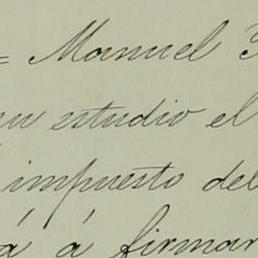 = Manuel
su estudio el
impuesto del
á á firmar